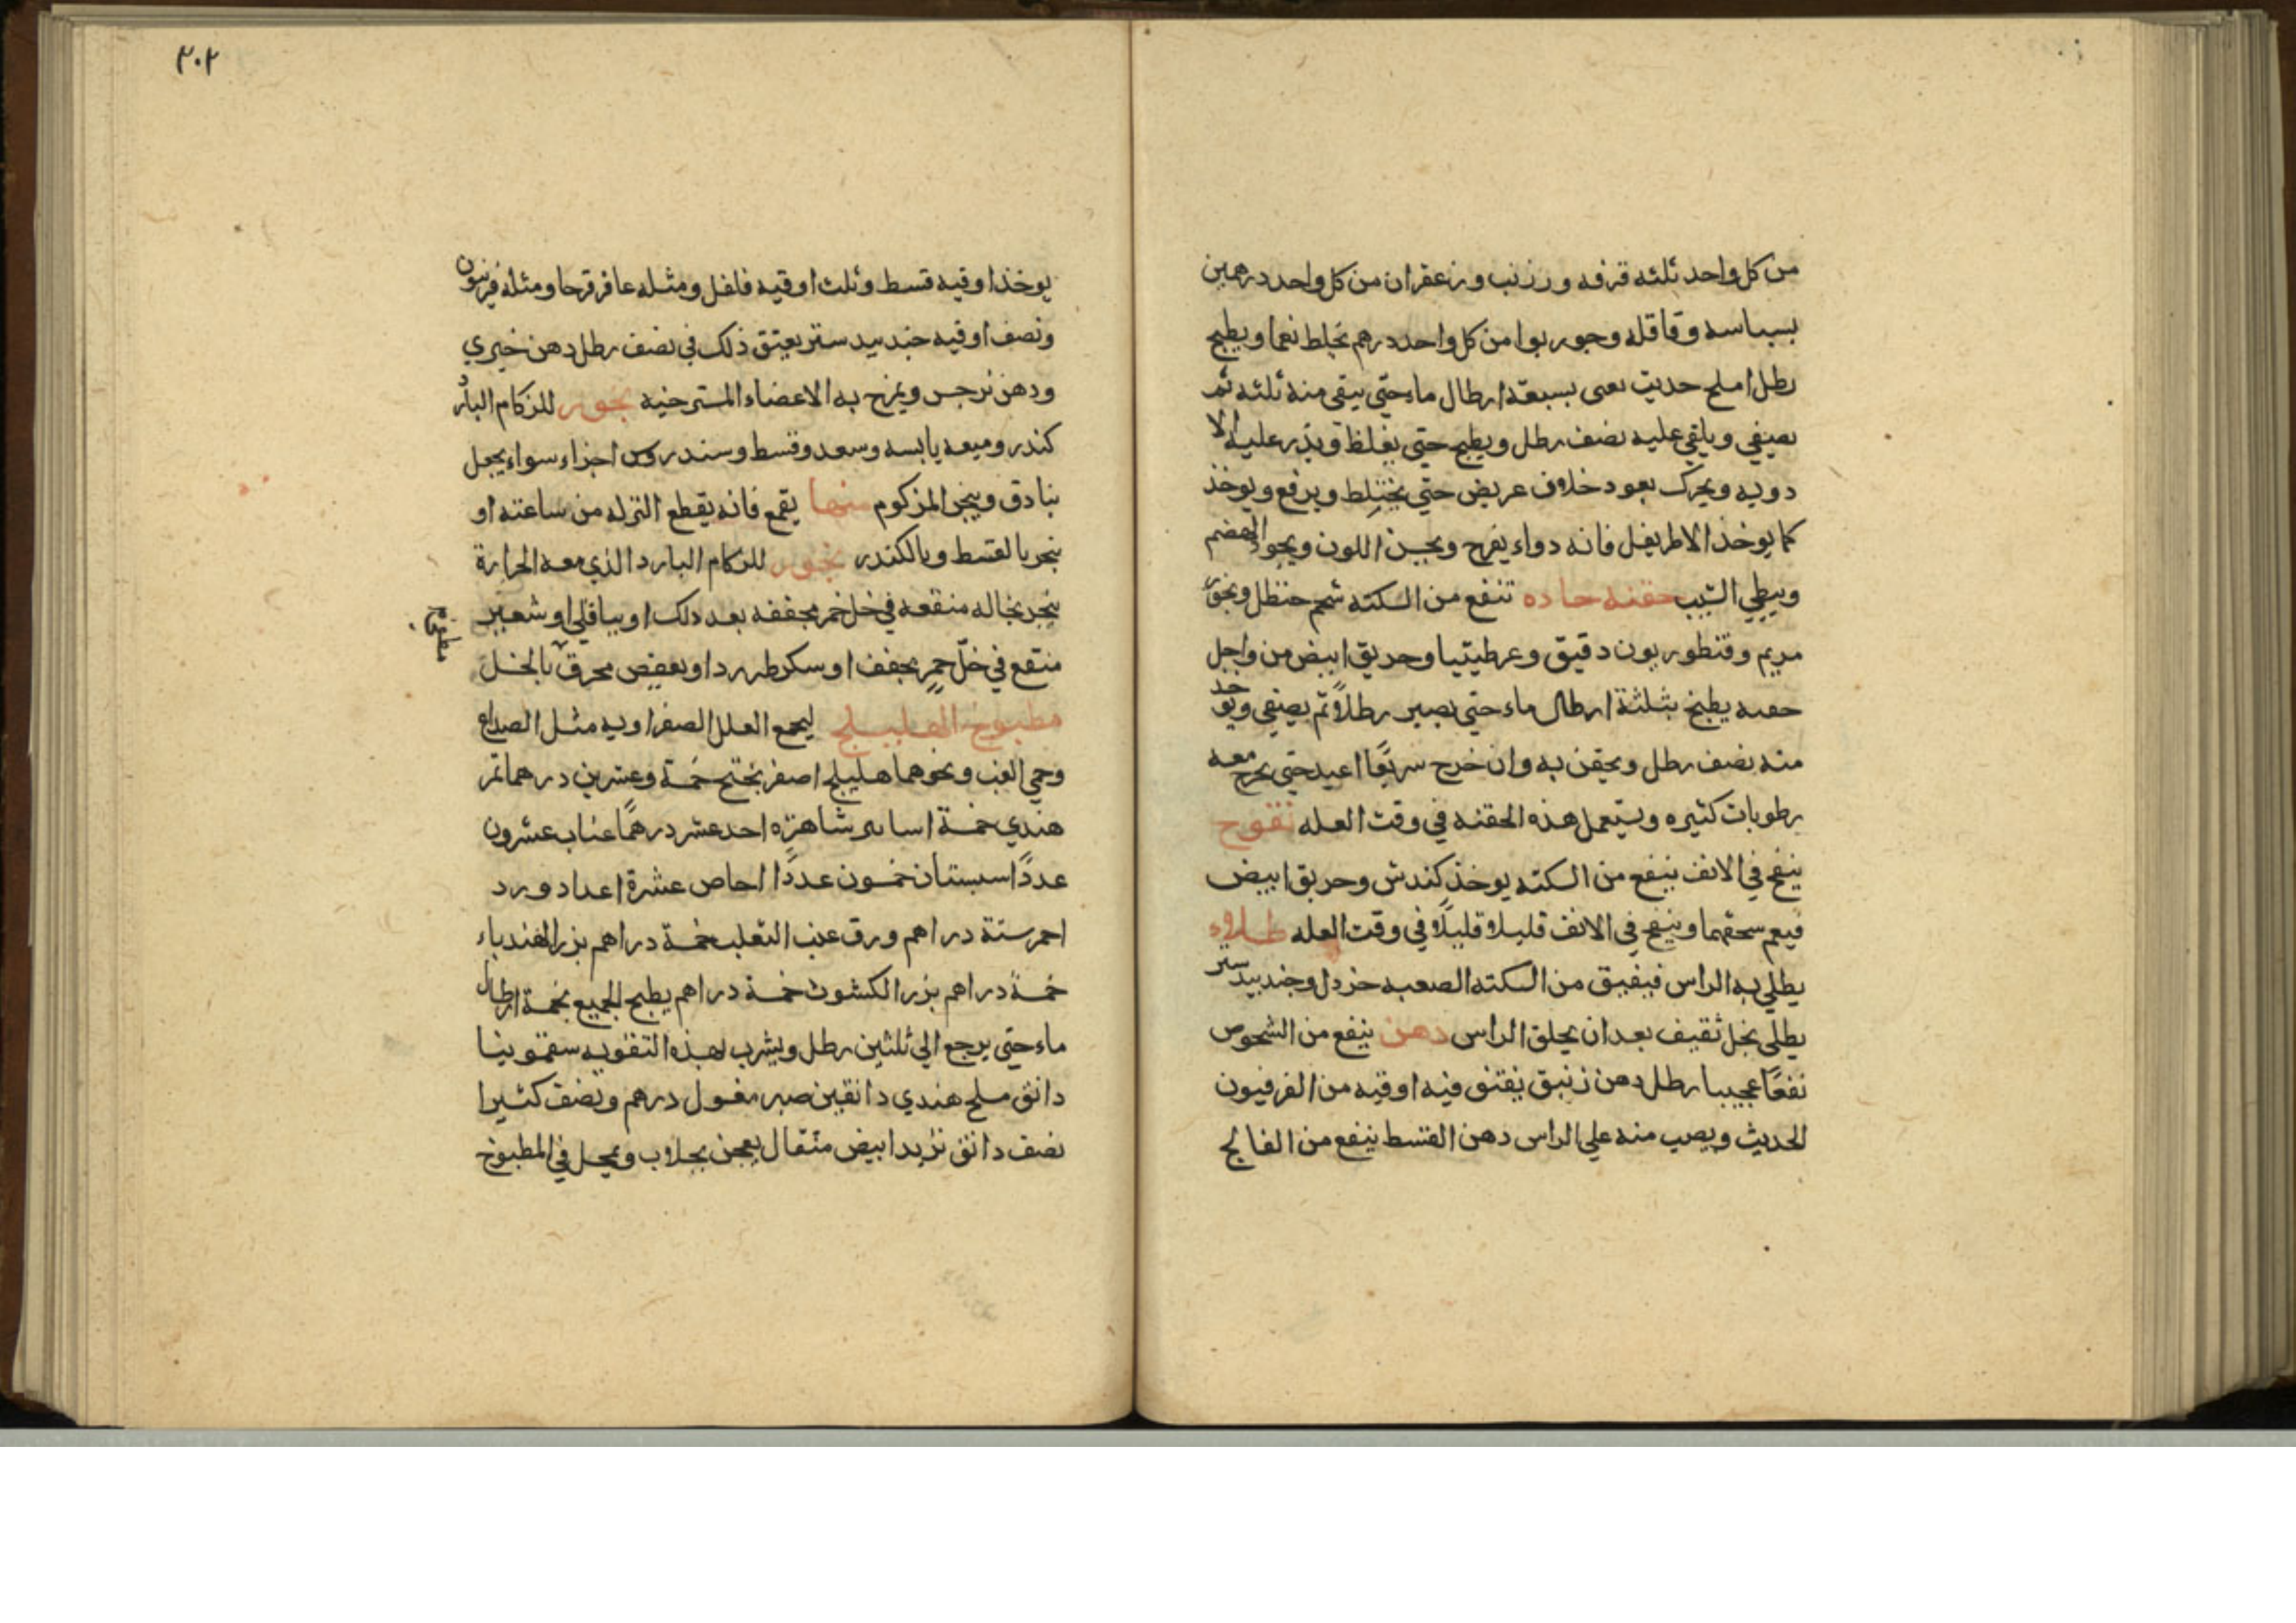 من كل واحد ثلثه قرفه و زرنب و زعفران من كل واحد درهمين
بسباسه و قاقله وجوزبوا من كل واحد درهم تخلط نعما ويطبخ
رطل املج حديث نعى بسبعة ارطال ماء حتي يبقي منه ثلثه ثم
يصفي ويلقي عليه نصف رطل ويطبخ حتي يغلظ ويذر عليه الا
دويه ويحرك بعود خلاف عريض حتي يختلط ويرفع ويوخذ
كما يوخذ الاطريفل فانه دواء يفرح ويحسن اللون ويجود الهضم
ويبطي الشيب حقنه حاده تنفع من السكته شحم حنظل وبخور
مريم وقنطوريون دقيق وعرطنيثا وخريق ابيض من واجل
حفنه يطبخ بثلثة ارطال ماء حتي يصير رطلاً ثم يصفي ويوخد
منه نصف رطل ويحقن به وان خرج سريعًا اعيد حتي يخرج معه
رطوبات كثيره ويستعمل هذه الحقنه في وقت العله نفوخ
ينفخ في الانف ينفع من السكته يوخذ كندش وخربق ابيض
فيعم سحقهما وينفخ في الانف قليلا قليلًا في وقت العله طلاء
يطلي به الراس فيفيق من السكته الصعبه خردل وجندبيدستر
يطلي بخل ثقيف بعد ان يحلق الراس دهن ينفع من الشخوص
نفعًا عجيبا رطل دهن زنبق يفتق فيه اوقيه من الفرفيون
الحديث ويصب منه علي الراس دهن القسط ينفع من الفالج
٣٠٢
يوخذ اوقيه قسط وثلث اوقيه فلفل ومثله عاقرقرحا ومثله فرفيون
ونصف اوقيه جندبيدستر يعتق ذلك في نصف رطل دهن خيري
ودهن نرجس ويمرخ به الاعضاء المسترخيه بخور للزكام البارد
كندر وميعه يابسه وسعد وقسط وسندروس اجزاء سواء يجعل
بنادق ويبخر المزكوم منها بقمع فانه يقطع النزله من ساعته او
يبخر بالقسط وبالكندر بخور للزكام البارد الذي معه الحرارة
يبخر بنخاله منقعه في خل خمر مجففه بعد ذلك او بباقلي او شعير
منقع في خل خمر مجفف او سكر طبرزد او بعفص محرق بالخل
مطبوخ
مطبوخ الهليلج لجميع العلل الصفراويه مثل الصداع
وحمي الغب ونحوهما هليلج اصفر بختج خمسة وعشرين درهما تمر
هندي خمسة اساتير شاهتره احد عشر درهمًا عناب عشرون
عددًا سبستان خمسون عددًا اجاص عشرة اعداد ورد
احمر ستة دراهم ورق عنب الثعلب خمسة دراهم بزر الهندباء
خمسة دراهم بزر الكشوث خمسة دراهم يطبخ الجميع بخمسة ارطال
ماء حتي يرجع الي ثلثين رطل ويشرب لهذه التقويه سقمونيا
دانق ملح هندي دانقين صبر مغسول درهم ونصف كثيرا
نصف دانق تربد ابيض مثقال يعجن بجلاب ويحل في المطبوخ